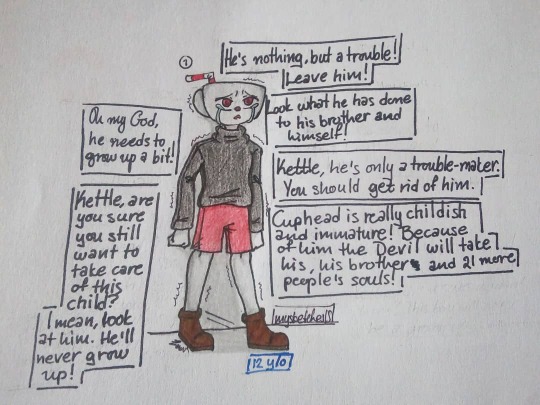 ①
He's nothing, but a trouble!
Leave him!
Look what he has done
to his brother and
himself!
Oh my God,
he needs to
grow up a bit!
Kettle, he's only a trouble-maker.
You should get rid of him.
Kettle, are
you sure
you still
want to
take care
of this
child?
I mean, look
at him. He'll
never grow
up!
Cuphead is really childish
and immature! Because
of him the Devil will take
his, his brother's and 21 more
people's souls!
12 y/o